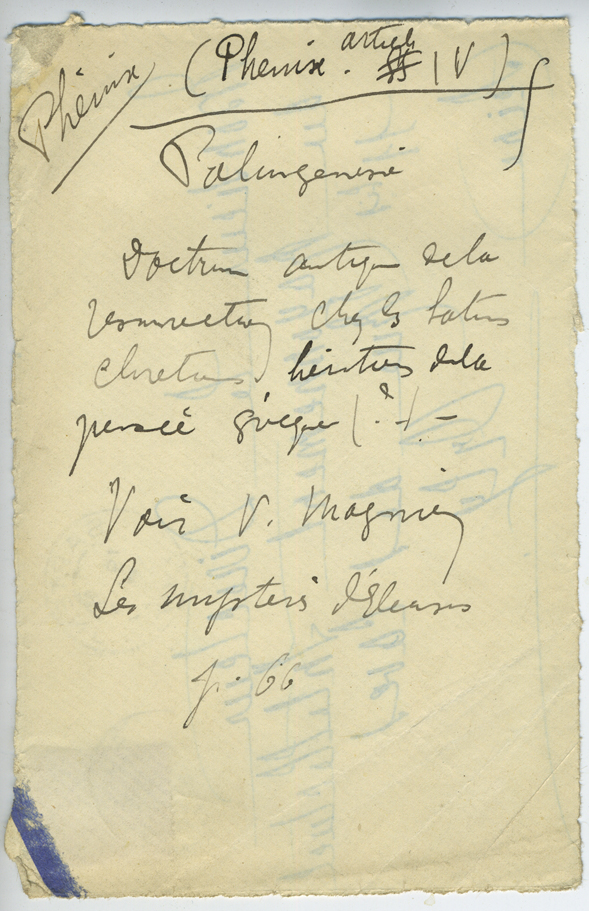 Phénix
(Phénix. article IV)
Palingénésie
Doctrine antique de la
résurrection chez les latins
chrétiens, héritiers de la
pensée grecque (?) –
Voir V. Magnien
Les mystères d'Éleusis
p. 66